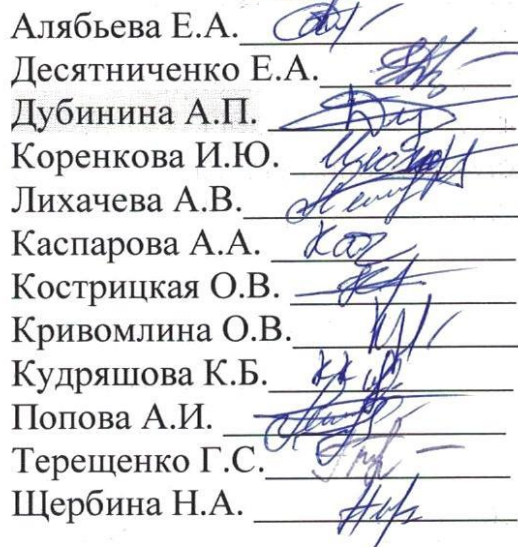 Алябьева Е.А.
Десятниченко Е.А.
Дубинина А.П.
Коренкова И.Ю.
Лихачева А.В.
Каспарова А.А.
Кострицкая О.В.
Кривомлина О.В.
Кудряшова К.Б.
Попова А.И.
Терещенко Г.С.
Щербина Н.А.